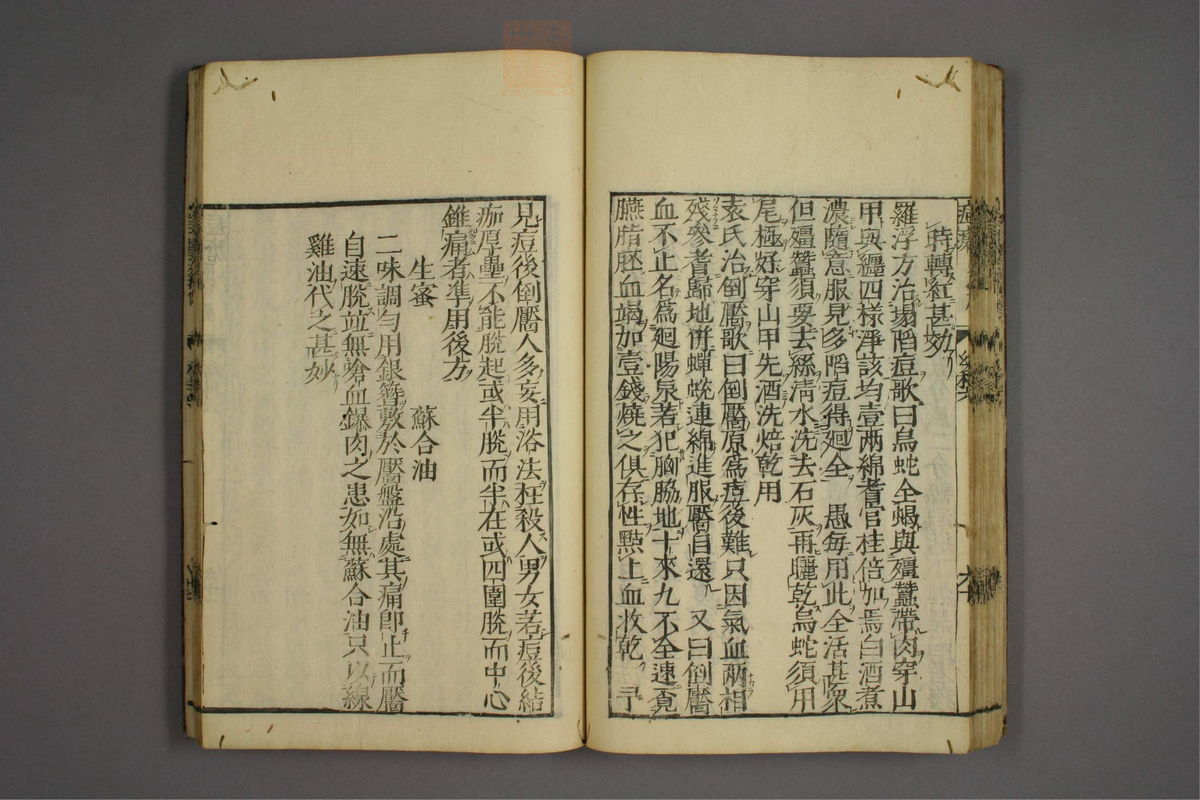 時轉紅甚妙
羅浮方治塌陷痘歌曰烏蛇全蝎與殭蠶帶肉穿山
甲與纏四樣淨該均壹两綿耆官桂倍加焉白酒煮
濃隨意服見多陷痘得廻全　愚每用此全活甚衆
但殭蠶須要去絲清水洗去石灰再曬乾烏蛇須用
尾極好穿山甲先酒洗焙乾用
袁氏治倒靨歌曰倒靨原爲痘後難只因氣血两相
殘參耆歸地併蟬蛻連綿進服靨自還　又曰倒靨
血不止名爲廻陽泉若犯胸脇地十來九不全速覓
臙脂胚血竭加壹錢燒之俱存性㸃上血收乾　予
見痘後倒靨人多妄用浴法枉殺人男女若痘後結
痂厚壘不能脫起或半脫而半在或四圍脫而中心
錐痛者準用後方
生蜜　蘇合油
二味調勻用銀簪敷於靨盤沿處其痛卽止而靨
自速脫並無嗆血爆肉之患如無蘇合油只以線
雞油代之甚妙